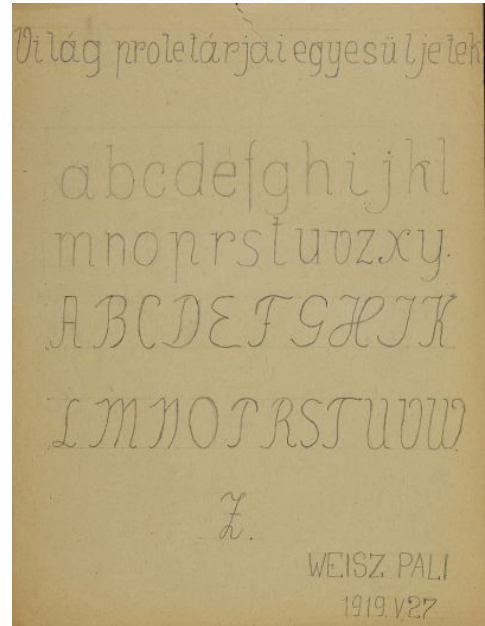 Világ proletárjai egyesüljetek
abcdefghijkl
mnoprstuvzxy.
ABCDEFGHIK
LMNOPRSTUVW
Z.
WEISZ PALI
1919.V27